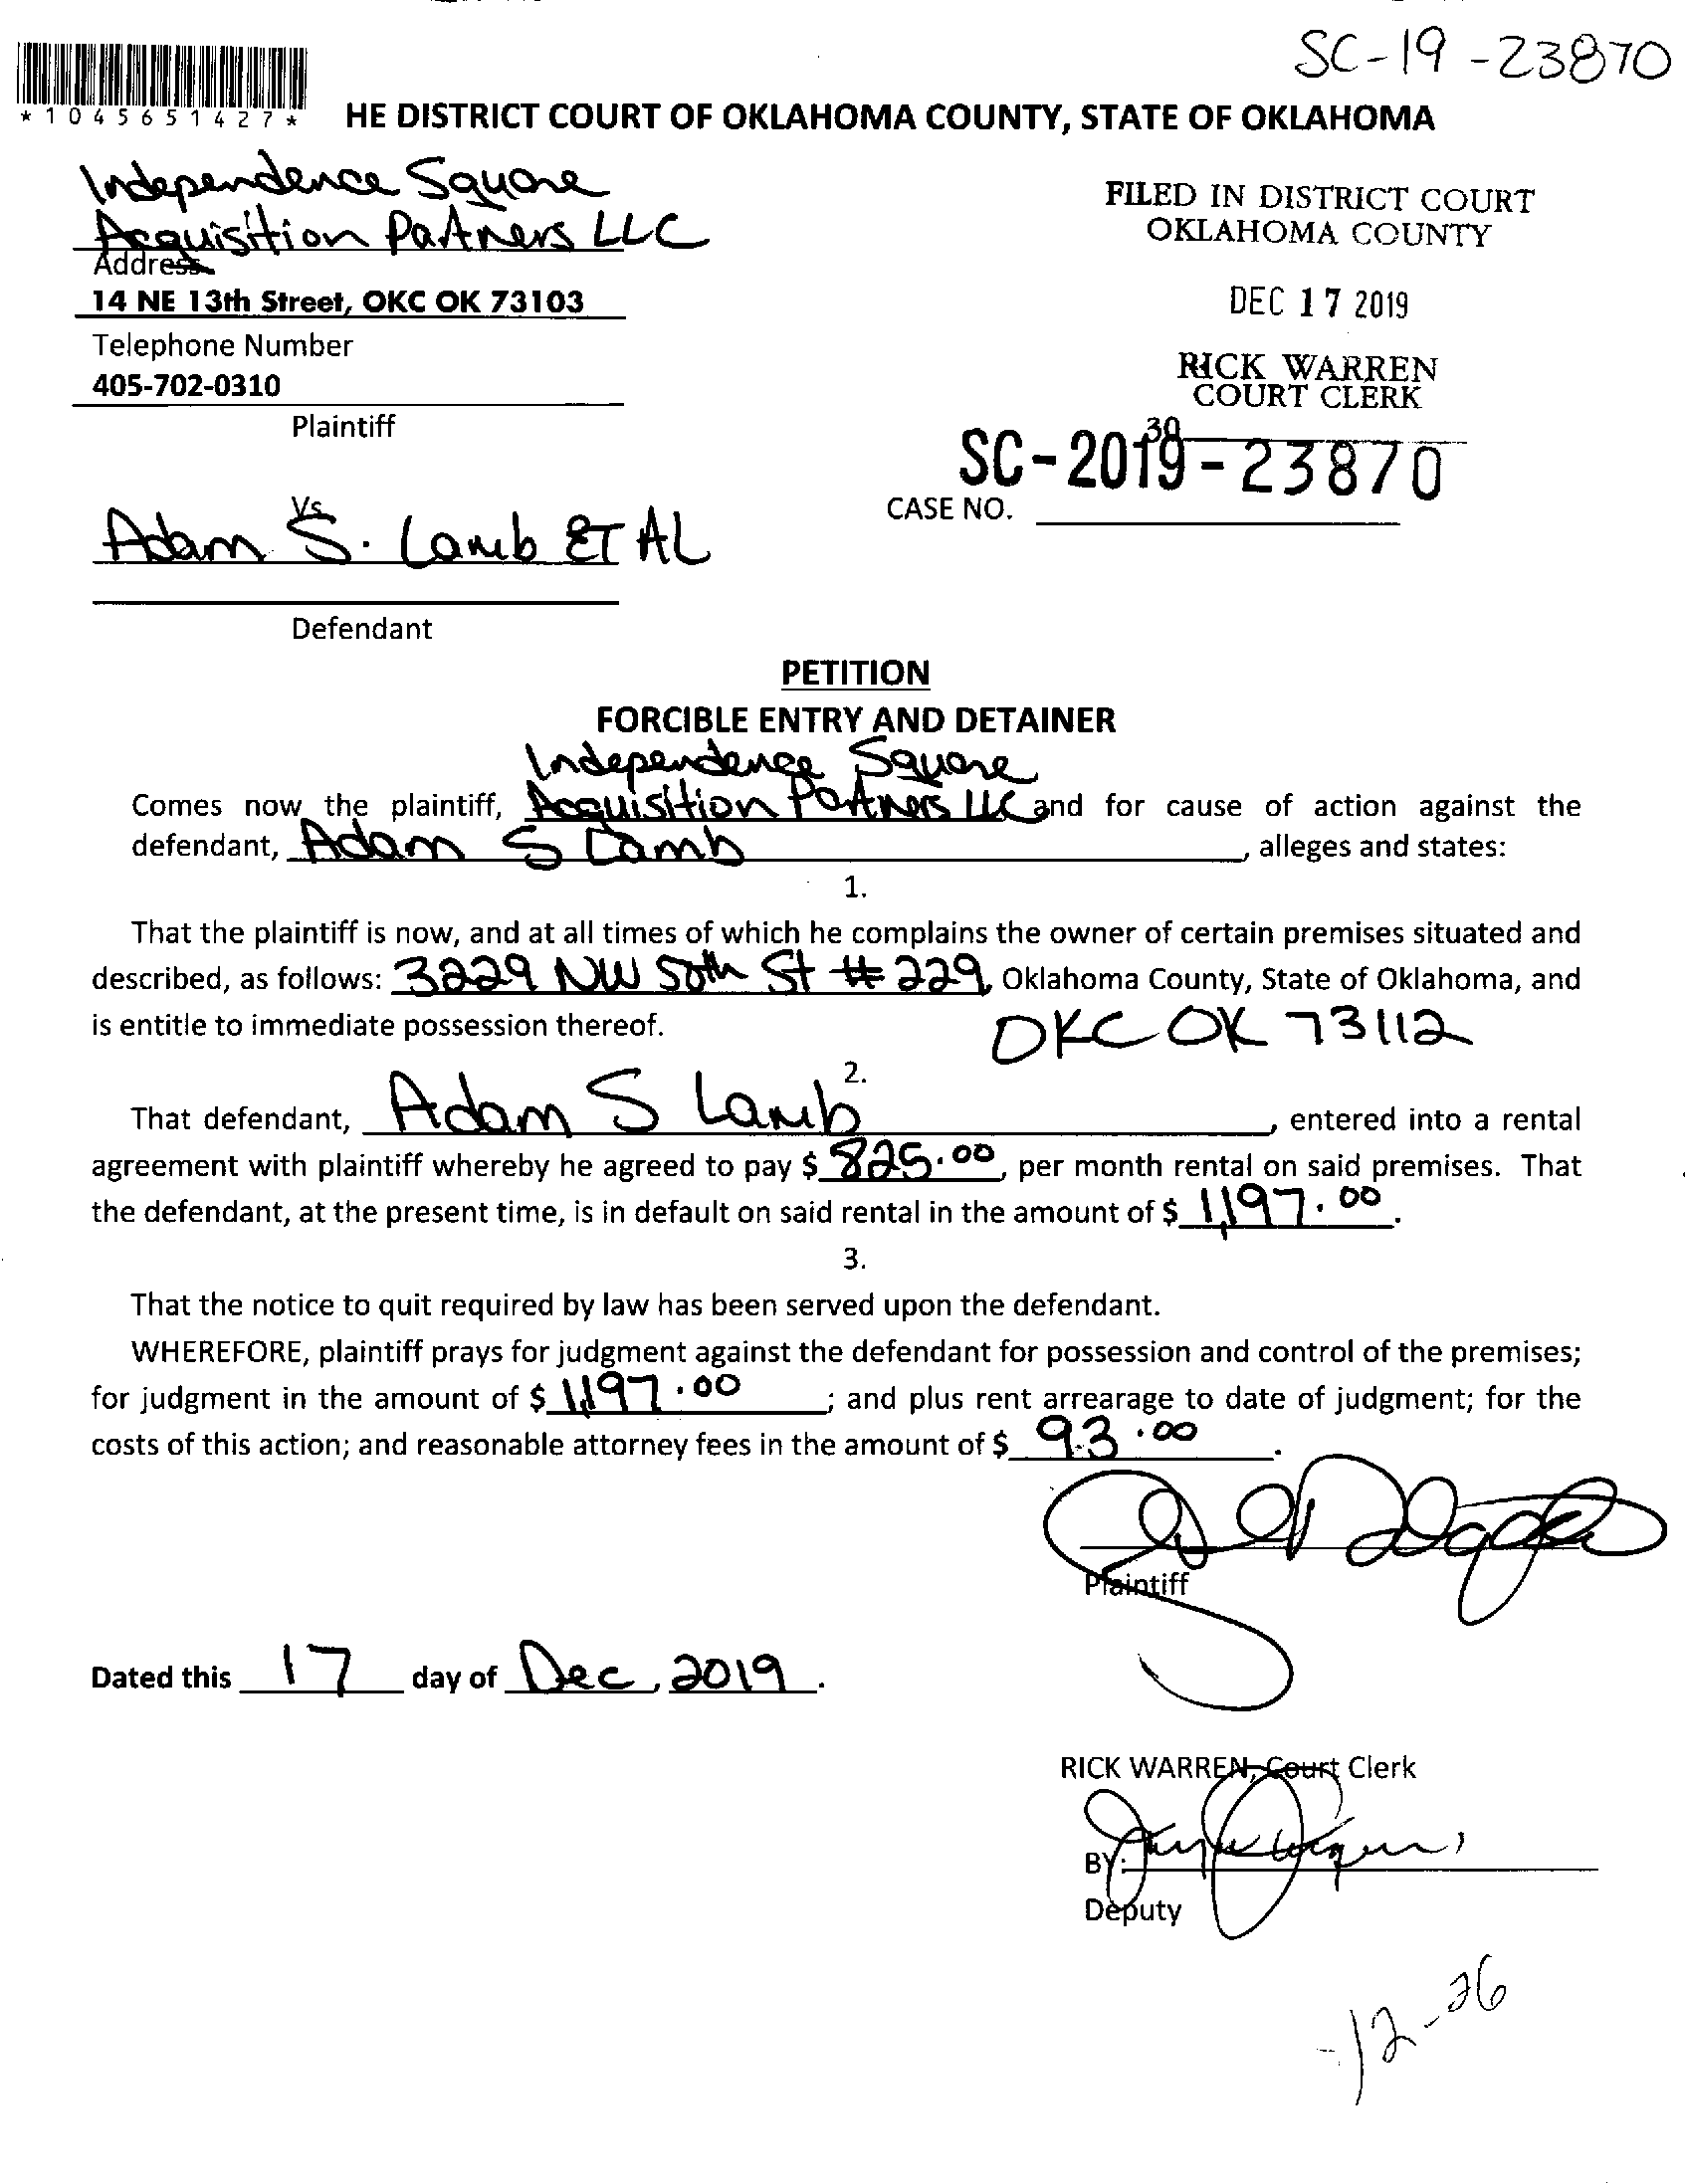 SC-19-23870
*1045651427*
HE DISTRICT COURT OF OKLAHOMA COUNTY, STATE OF OKLAHOMA
Independence Square
Acquisition Partners LLC
Address
14 NE 13th Street, OKC OK 73103
Telephone Number
405-702-0310
Plaintiff
FILED IN DISTRICT COURT
OKLAHOMA COUNTY
DEC 17 2019
RICK WARREN
COURT CLERK
39
SC-2019-23870
CASE NO.
Vs
Adam S. Lamb ET AL
Defendant
PETITION
FORCIBLE ENTRY AND DETAINER
Independence Square
Comes now the plaintiff, Acquisition Partners LLC and for cause of action against the
defendant, Adam S Lamb, alleges and states:
1.
That the plaintiff is now, and at all times of which he complains the owner of certain premises situated and
described, as follows: 3229 NW 50th St # 229, Oklahoma County, State of Oklahoma, and
is entitle to immediate possession thereof. OKC OK 73112
2.
That defendant, Adam S Lamb, entered into a rental
agreement with plaintiff whereby he agreed to pay $ 825.00, per month rental on said premises. That
the defendant, at the present time, is in default on said rental in the amount of $ 1,197.00.
3.
That the notice to quit required by law has been served upon the defendant.
WHEREFORE, plaintiff prays for judgment against the defendant for possession and control of the premises;
for judgment in the amount of $ 1,197.00; and plus rent arrearage to date of judgment; for the
costs of this action; and reasonable attorney fees in the amount of $ 93.00.
Plaintiff
Dated this 17 day of Dec, 2019.
RICK WARREN, Court Clerk
BY:
Deputy
12-26